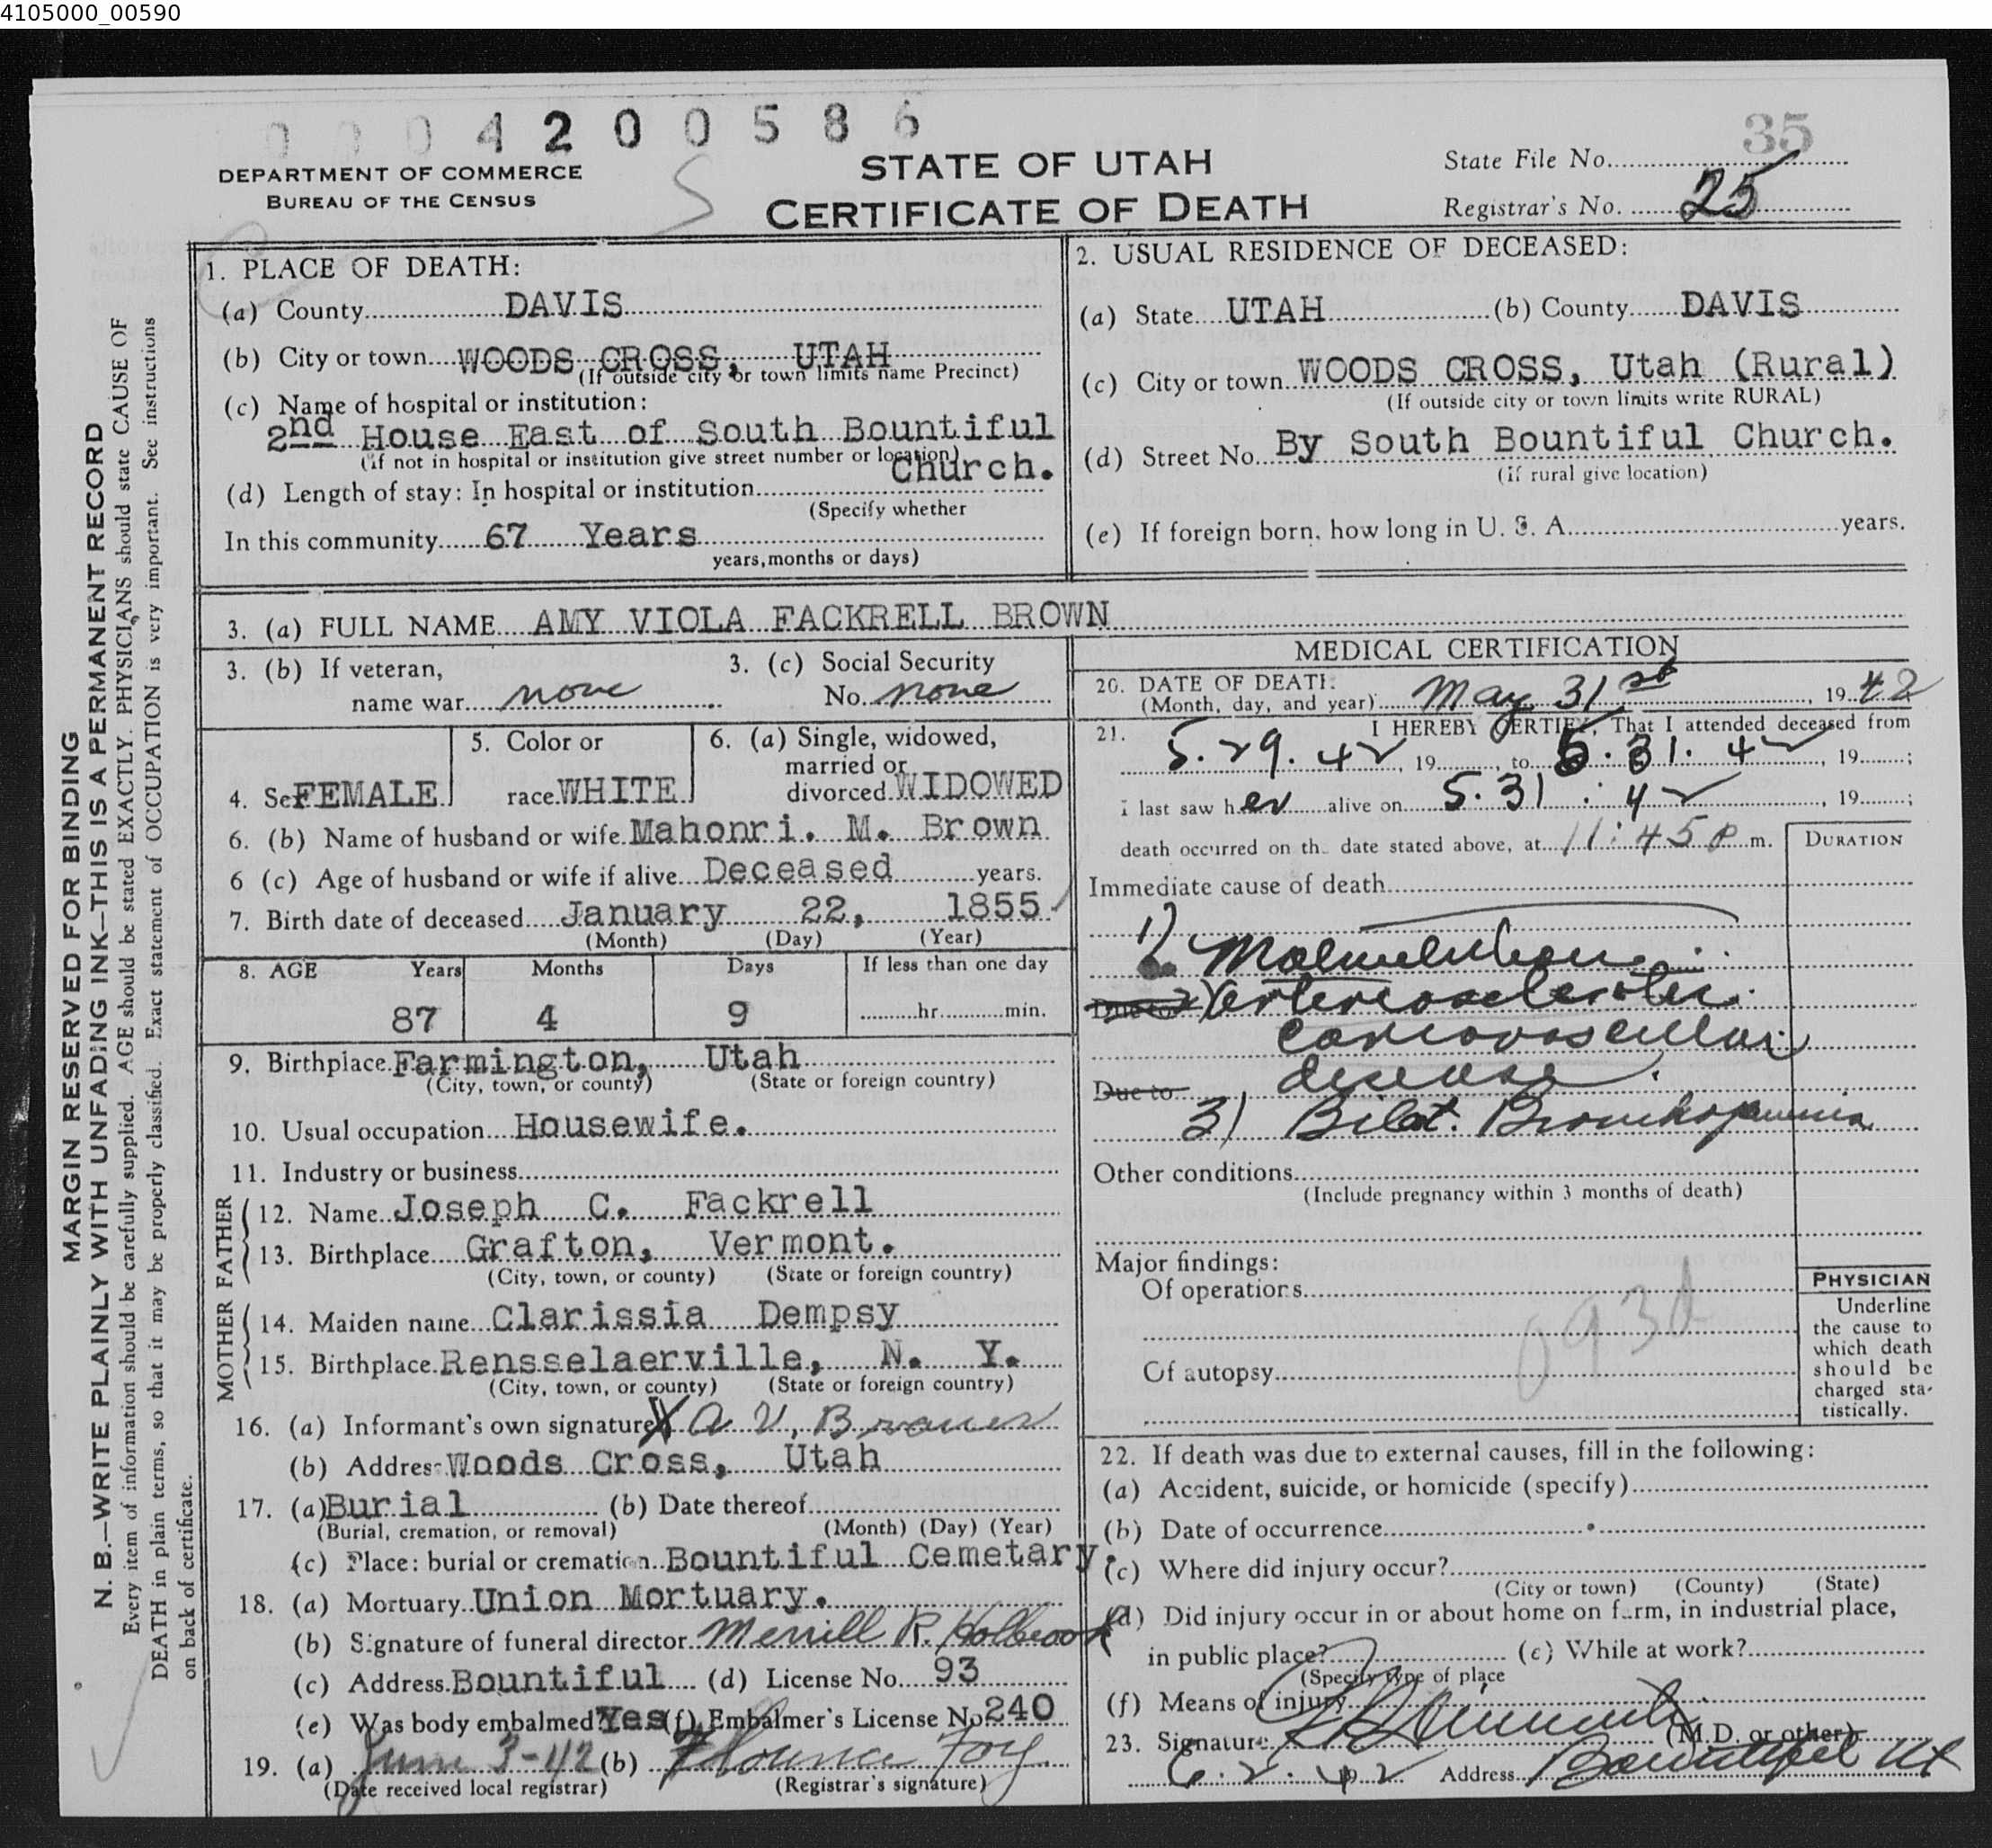 4105000_00590
0004200586
35
DEPARTMENT OF COMMERCE
BUREAU OF THE CENSUS
S
STATE OF UTAH
CERTIFICATE OF DEATH
State File No.
Registrar's No. 25
MARGIN RESERVED FOR BINDING
N. B.—WRITE PLAINLY WITH UNFADING INK—THIS IS A PERMANENT RECORD
Every item of information should be carefully supplied. AGE should be stated EXACTLY. PHYSICIANS should state CAUSE OF
DEATH in plain terms, so that it may be properly classified. Exact statement of OCCUPATION is very important. See instructions
on back of certificate.
1. PLACE OF DEATH:
(a) County DAVIS
(b) City or town WOODS CROSS, UTAH
(If outside city or town limits name Precinct)
(c) Name of hospital or institution:
2nd House East of South Bountiful
(if not in hospital or institution give street number or location) Church.
(d) Length of stay: In hospital or institution
(Specify whether
In this community 67 Years
years, months or days)
2. USUAL RESIDENCE OF DECEASED:
(a) State UTAH (b) County DAVIS
(c) City or town WOODS CROSS, Utah (Rural)
(If outside city or town limits write RURAL)
(d) Street No. By South Bountiful Church.
(if rural give location)
(e) If foreign born, how long in U. S. A. years.
3. (a) FULL NAME AMY VIOLA FACKRELL BROWN
3. (b) If veteran,
name war none
3. (c) Social Security
No. none
4. Sex FEMALE
5. Color or
race WHITE
6. (a) Single, widowed,
married or
divorced WIDOWED
6. (b) Name of husband or wife Mahonri. M. Brown
6 (c) Age of husband or wife if alive Deceased years.
7. Birth date of deceased January 22, 1855
(Month) (Day) (Year)
8. AGE Years Months Days If less than one day
87 4 9 hr. min.
9. Birthplace Farmington, Utah
(City, town, or county) (State or foreign country)
10. Usual occupation Housewife.
11. Industry or business
FATHER
12. Name Joseph C. Fackrell
13. Birthplace Grafton, Vermont.
(City, town, or county) (State or foreign country)
MOTHER
14. Maiden name Clarissia Dempsy
15. Birthplace Rensselaerville, N. Y.
(City, town, or county) (State or foreign country)
16. (a) Informant's own signature X A. V, Brown
(b) Address Woods Cross, Utah
17. (a) Burial (b) Date thereof
(Burial, cremation, or removal) (Month) (Day) (Year)
(c) Place: burial or cremation Bountiful Cemetary.
18. (a) Mortuary Union Mortuary.
(b) Signature of funeral director Merrill R. Holbrook
(c) Address Bountiful (d) License No. 93
(e) Was body embalmed? Yes (f) Embalmer's License No. 240
19. (a) June 3-42 (b) Florence Foy
(Date received local registrar) (Registrar's signature)
MEDICAL CERTIFICATION
20. DATE OF DEATH:
(Month, day, and year) May 31st, 1942
21. I HEREBY CERTIFY, That I attended deceased from
5.29.42, 19 , to 5.31.42, 19 ;
I last saw her alive on 5.31.42, 19 ;
death occurred on the date stated above, at 11:45 p m.
DURATION
Immediate cause of death
1) Malnutrition
Due to 2) Arteriosclerotic
cariovascular
Due to disease.
3) Bilat. Bronchopneumia
Other conditions
(Include pregnancy within 3 months of death)
Major findings:
Of operations
093d
Of autopsy
PHYSICIAN
Underline
the cause to
which death
should be
charged sta-
tistically.
22. If death was due to external causes, fill in the following:
(a) Accident, suicide, or homicide (specify)
(b) Date of occurrence
(c) Where did injury occur?
(City or town) (County) (State)
(d) Did injury occur in or about home on farm, in industrial place,
in public place? (e) While at work?
(Specify type of place
(f) Means of injury
23. Signature (M.D. or other)
6.2.42 Address Bountiful Ut